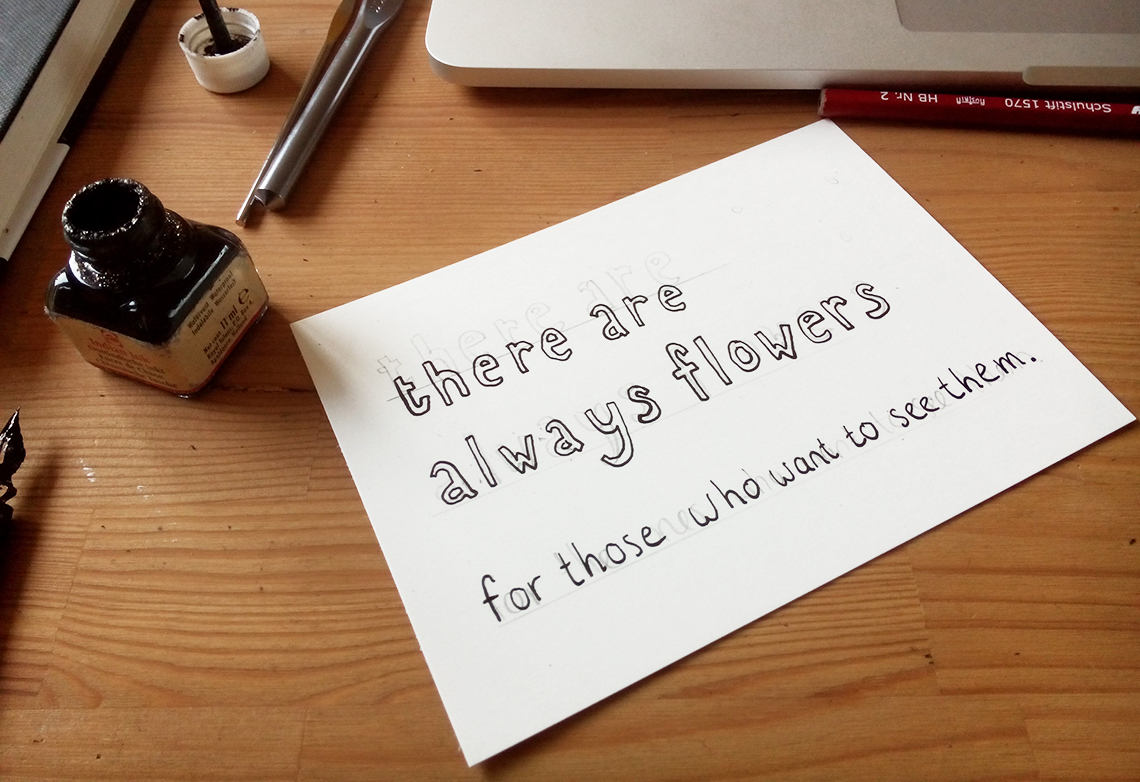 there are
always flowers
for those who want to see them.
Schulstift 1570 HB Nr. 2
Indian Ink
17 ml e